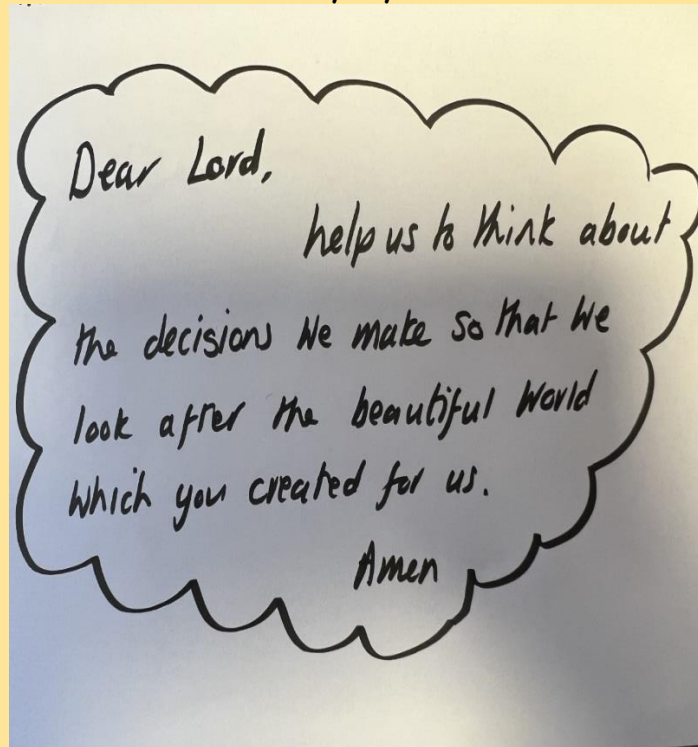 Dear Lord,
help us to think about
the decisions we make so that we
look after the beautiful world
which you created for us.
Amen